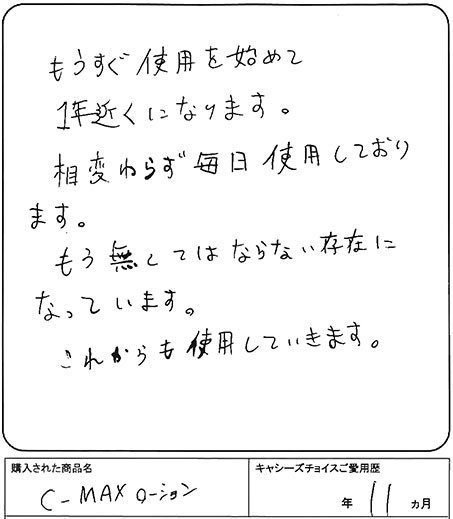 もうすぐ使用を始めて
1年近くになります。
相変わらず毎日使用しており
ます。
もう無くてはならない存在に
なっています。
これからも使用していきます。
購入された商品名
C-MAXローション
キャシーズチョイスご愛用歴
年 11 ヵ月